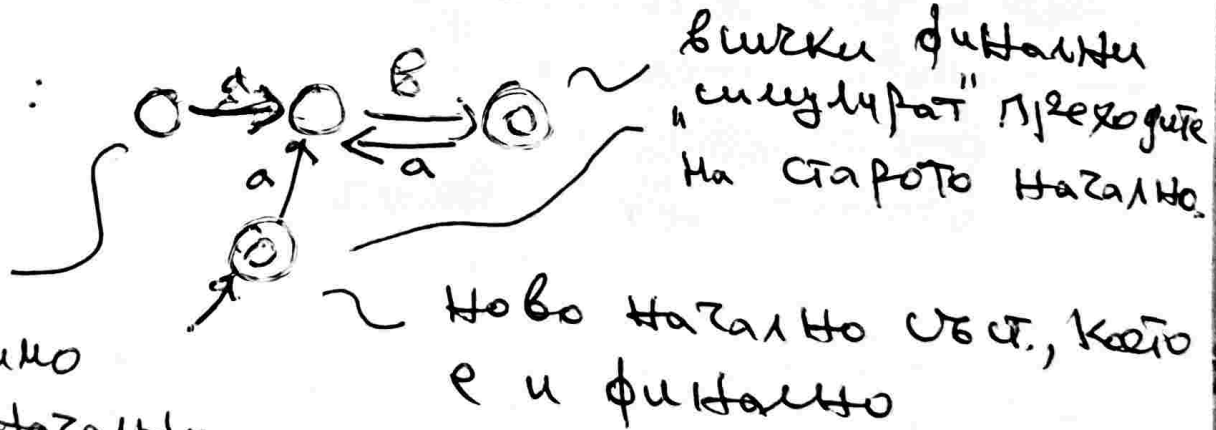 всички финални
:
а
в
„симулират" преходите
а
а
на старото начално.
ново начално съст., което
е и финално